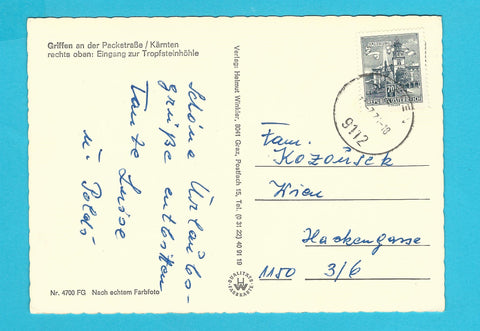 Griffen an der Packstraße / Kärnten
rechts oben: Eingang zur Tropfsteinhöhle
Schöne Urlaubs-
grüße entbieten
Tante Luise
u. Poldi
Nr. 4700 FG Nach echtem Farbfoto
Verlag: Helmut Winkler, 8041 Graz, Postfach 15, Tel. (0 31 22) 40 91 19
9112
Fam.
Kozousek
Wien
Hackengasse
1150 3/6
QUALITÄTS
FARBKARTE